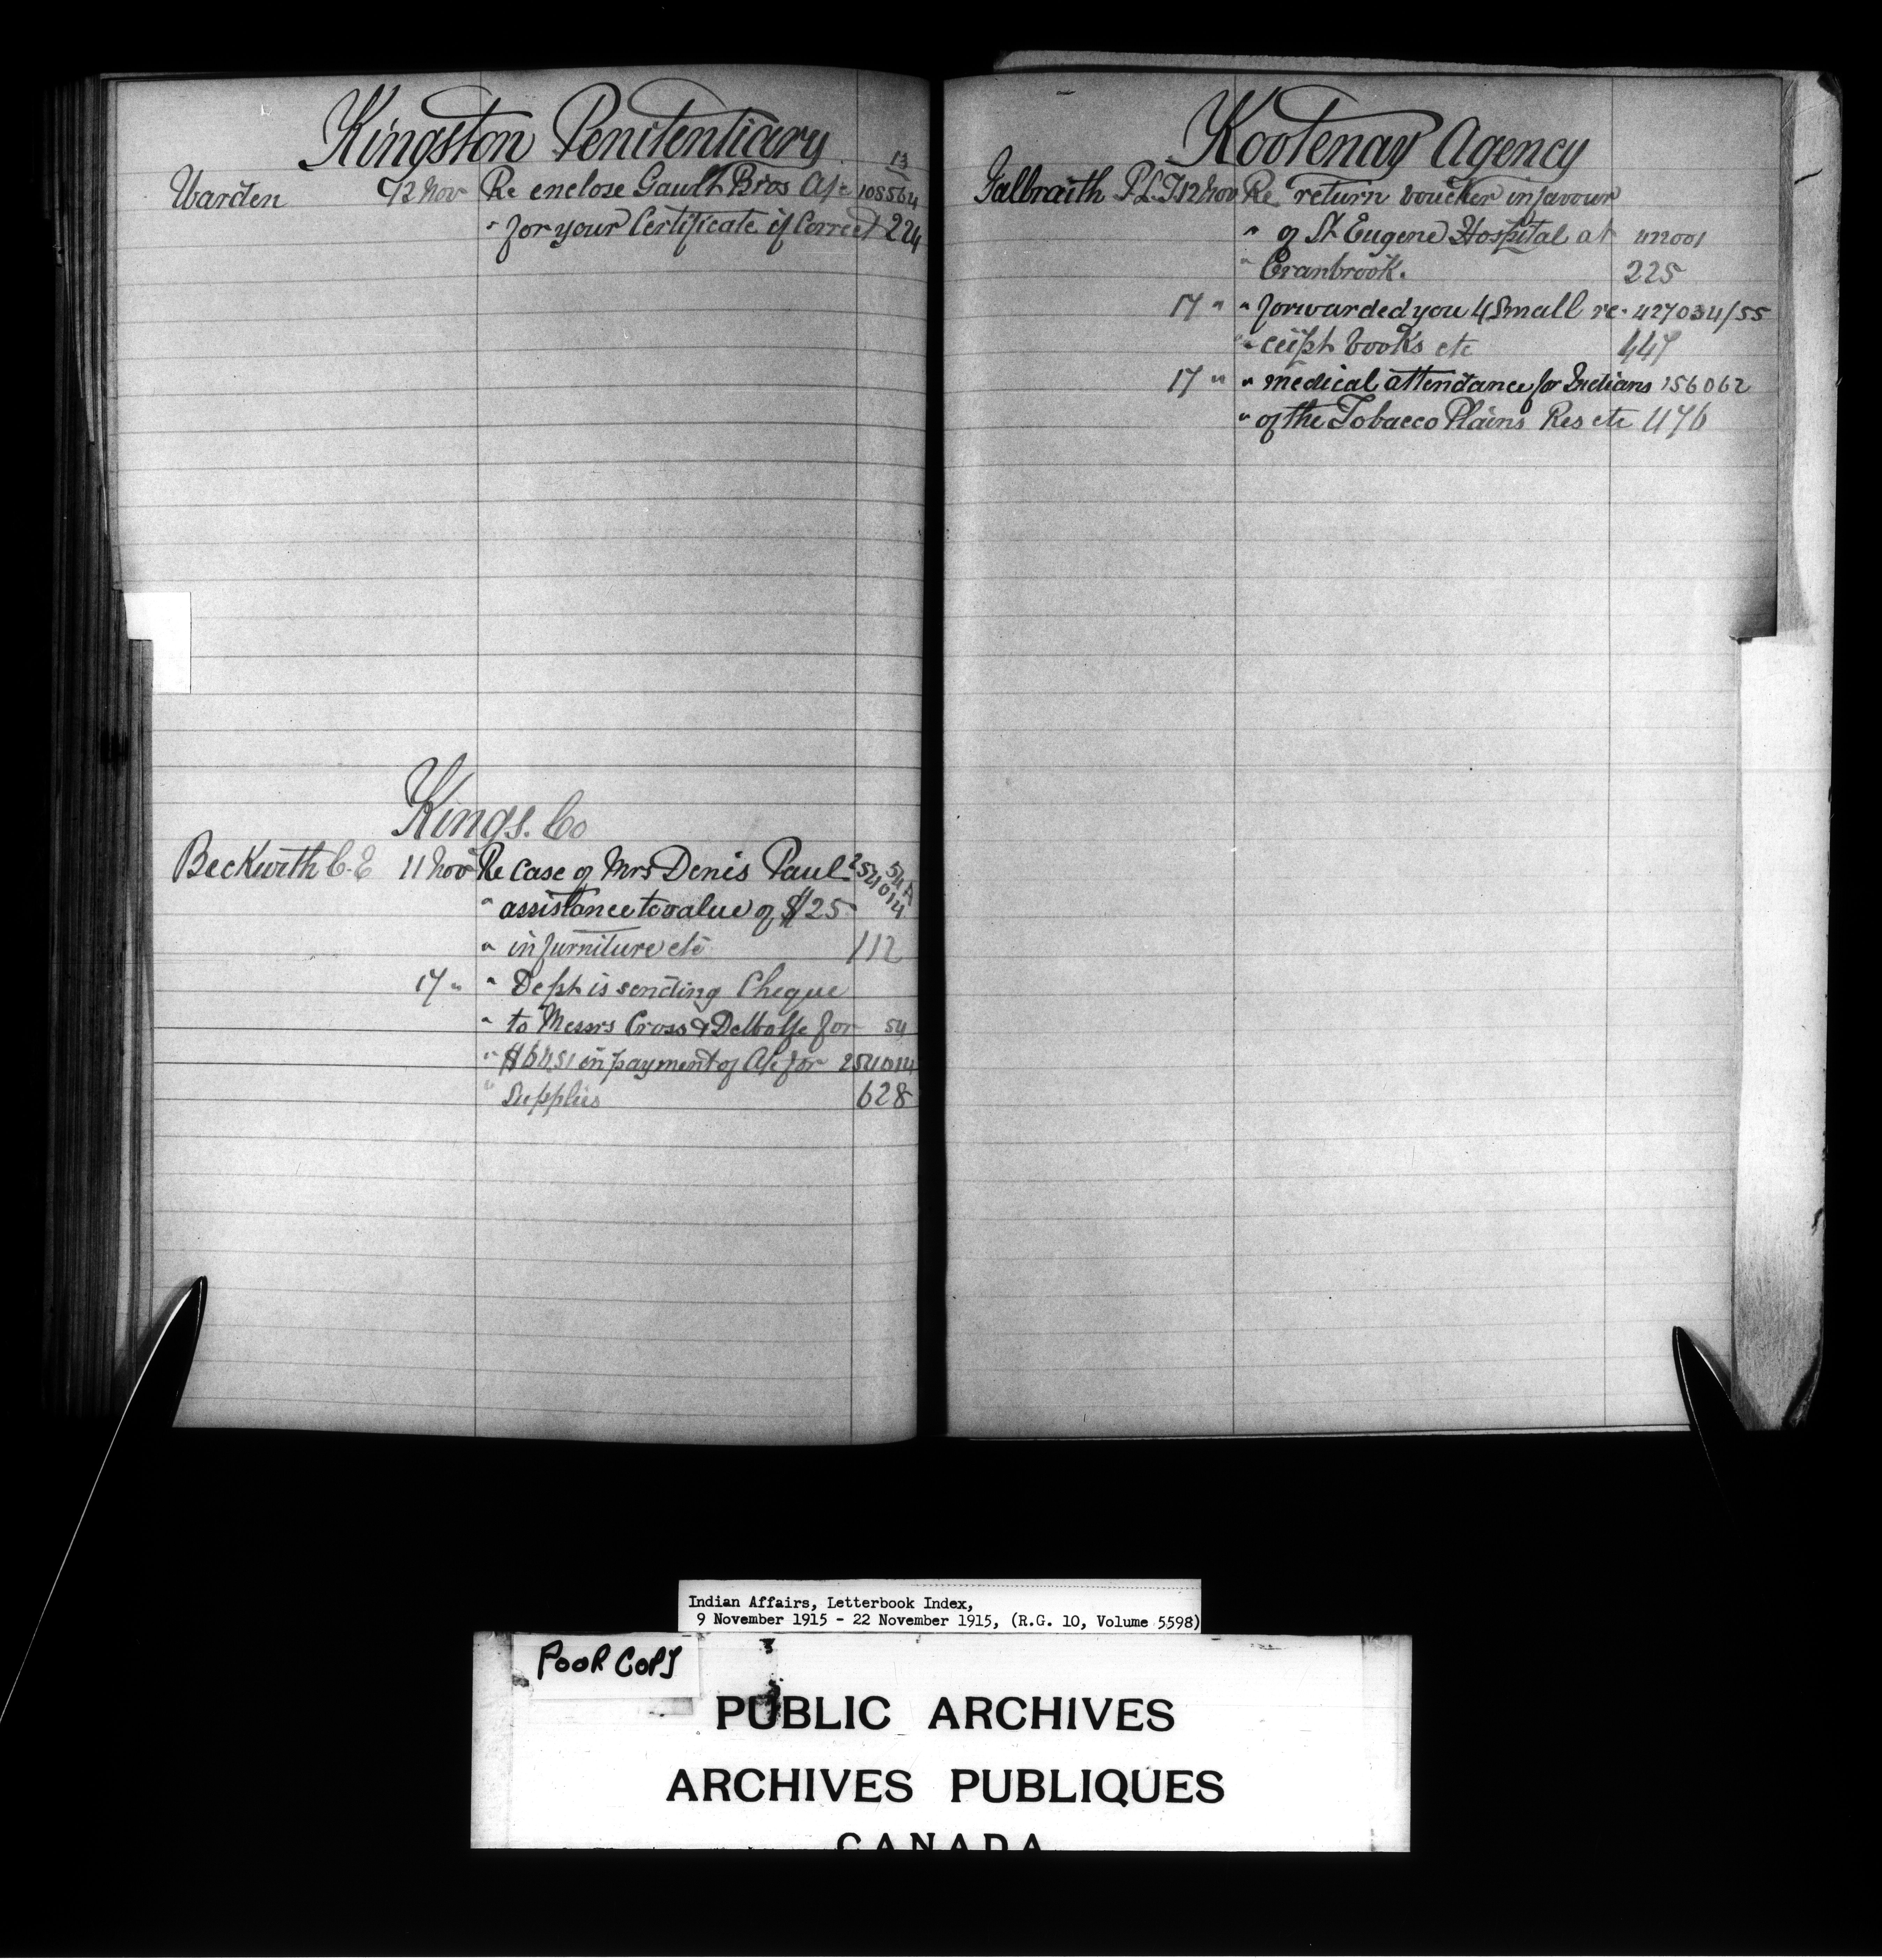 Kingston Penitentiary
13
Warden 12 Nov Re enclose Gault Bros A/c 108564
" for your Certificate if Correct 224
Kings. Co
Beckwith C.E 11 Nov Re Case of Mrs Denis Paul 254014
54A
" assistance to value of $25
" in furniture etc 112
17 " " Dept is sending Cheque
" to Messrs Cross & for 54
" in payment of A/c for 254014
" Supplies 628
Kootenay Agency
Galbraith 12 Nov Re return voucher in favour
" of St Eugene Hospital at
" Cranbrook. 225
17 " " forwarded you 4 Small re- 427034/55
" ceipt books etc 447
17 " " medical attendance for Indians 156062
" of the Tobacco Plains Res etc 476
Indian Affairs, Letterbook Index,
9 November 1915 - 22 November 1915, (R.G. 10, Volume 5598)
POOR COPY
PUBLIC ARCHIVES
ARCHIVES PUBLIQUES
CANADA